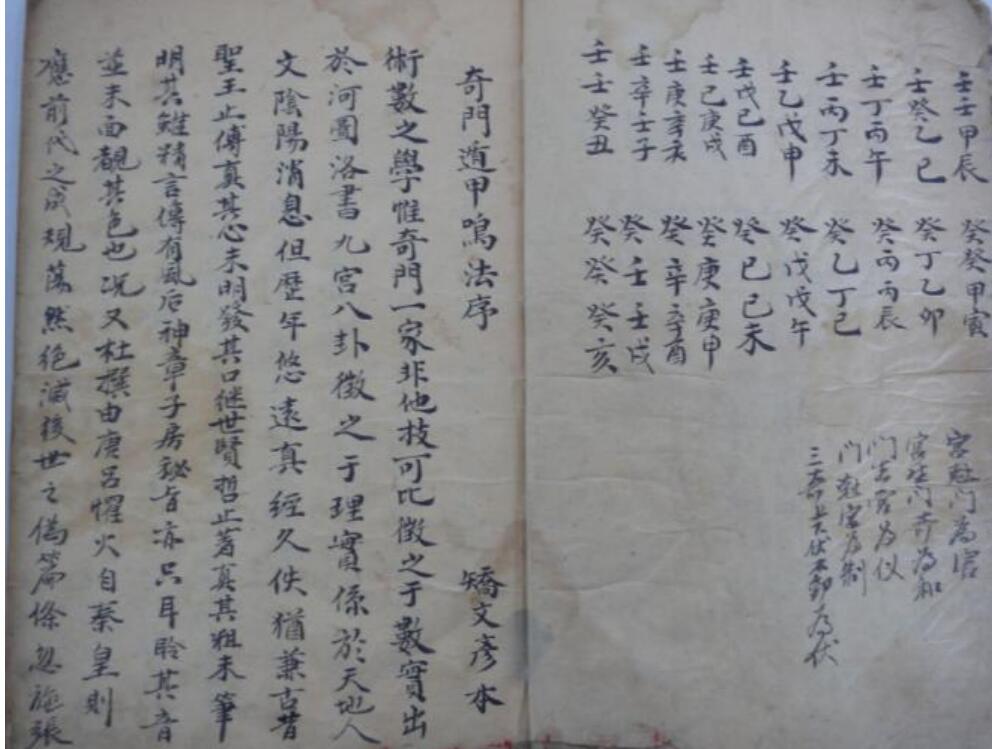 壬壬甲辰 癸癸甲寅
壬癸乙巳 癸丁乙卯
壬丁丙午 癸丙丙辰
壬丙丁未 癸乙丁巳
壬乙戊申 癸戊戊午
壬戊己酉 癸己己未
壬己庚戌 癸庚庚申
壬庚辛亥 癸辛辛酉
壬辛壬子 癸壬壬戌
壬壬癸丑 癸癸癸亥
宮尅门為害
宮生门為和
门生宮为仪
门尅宮为制
三奇上不動为伏
奇門遁甲鳴法序 矯文彥本
術數之學惟奇門一家非他技可比徵之于數實出
於河圖洛書九宮八卦徵之于理實係於天地人
文陰陽消息但歷年悠遠真經久佚猶兼古昔
聖王止傳真其心未明發其口继世賢哲止著真其粗未筆
明其精言傳有風后神章子房秘旨亦只耳聆其音
並未面覩其色也况又杜撰由唐呂懼火自秦皇則
應前代之成規蕩然絕滅後世之偽篇條忽施張